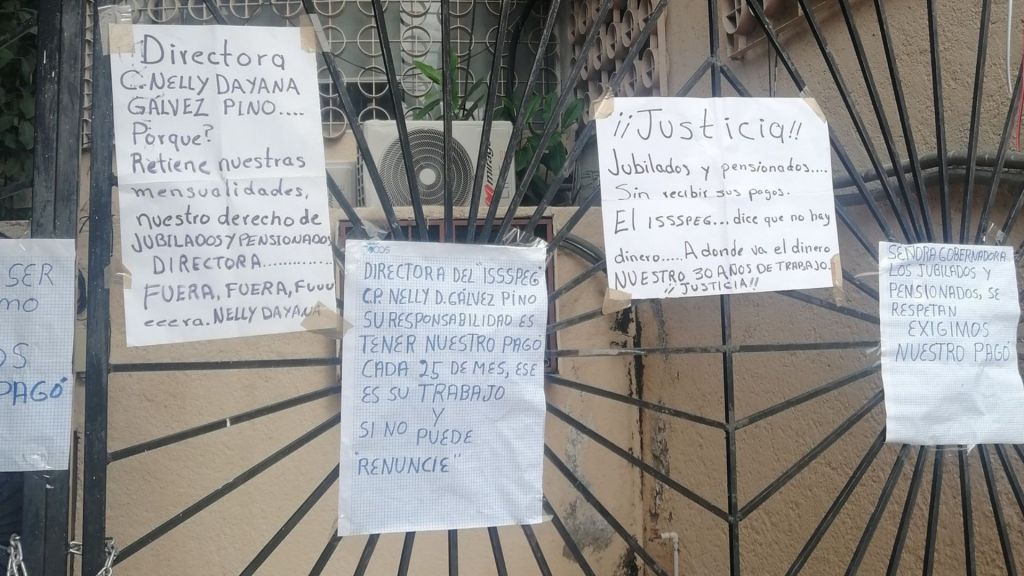 Directora
C. NELLY DAYANA
GÁLVEZ PINO....
Porque?
Retiene nuestras
mensualidades,
nuestro derecho de
JUBILADOS Y PENSIONADOS
DIRECTORA............
FUERA, FUERA, Fuuu
eeera. NELLY DAYANA
SER
mo
OS
PAGÓ
DIRECTORA DEL "ISSSPEG"
CP. NELLY D. GÁLVEZ PINO
SU RESPONSABILIDAD ES
TENER NUESTRO PAGÓ
CADA 25 DE MES, ESE
ES SU TRABAJO
Y
SI NO PUEDE
"RENUNCIE"
¡¡Justicia!!
Jubilados y pensionados....
Sin recibir sus pagos.
El ISSSPEG...dice que no hay
dinero.....A donde va el dinero
NUESTRO 30 AÑOS DE TRABAJO.
¡¡JUSTICIA!!
SEÑORA GOBERNADORA
LOS JUBILADOS Y
PENSIONADOS, SE
RESPETAN
EXIGIMOS
NUESTRO PAGÓ